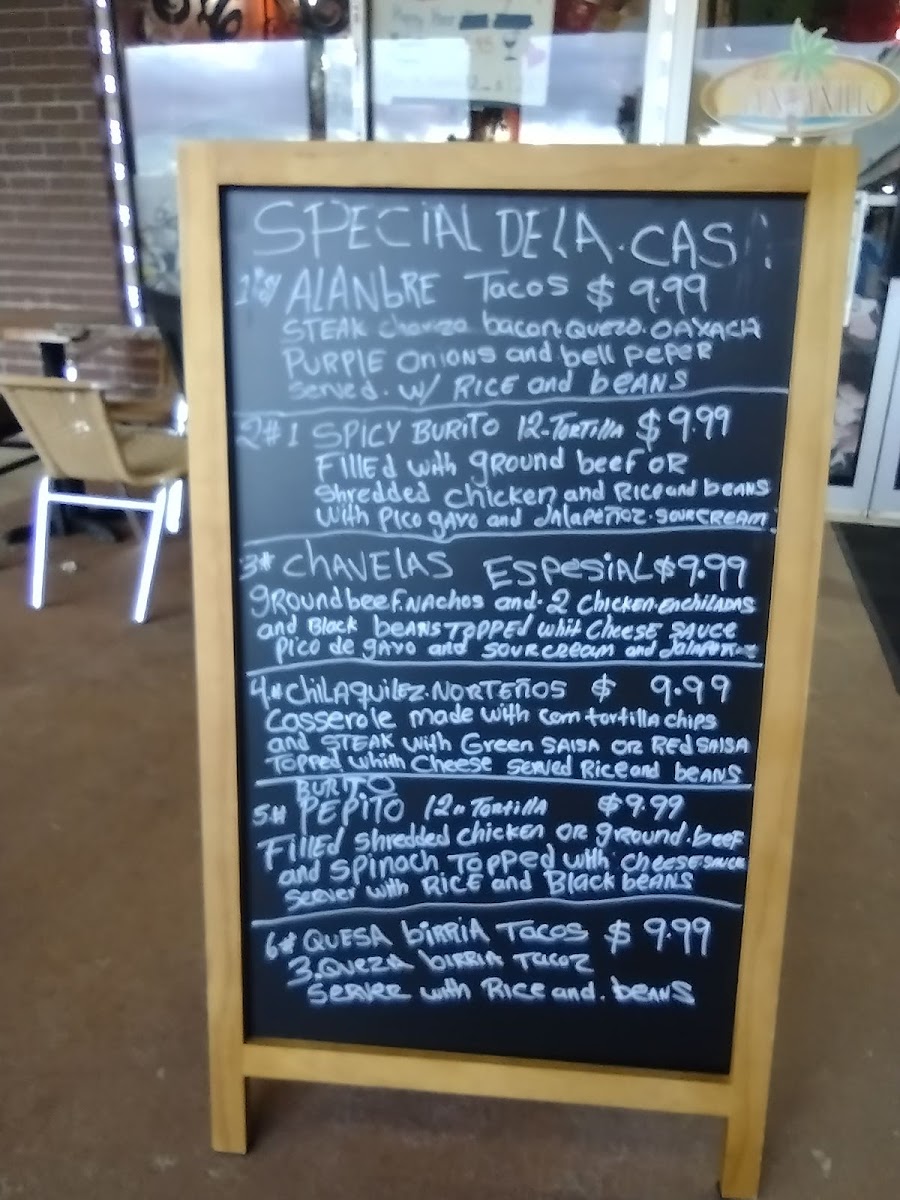 SPECIAL DE LA. CASA
ALANbRE Tacos $ 9.99
STEAK chorizo bacon. QUEZO. OAXACA
PURPLE ONIONS and bell PEPER
Served. w/ RICE and bEANS
2#1 SPICY BURITO 12-TORTILLA $9.99
FILLED with gROUND beef OR
Shredded chicken and RICE and bEANS
With PICO gAYO and JALAPEÑOZ. SOURCREAM
3# CHAVELAS ESPESIAL $9.99
gROUND beef. NACHOS and. 2 CHICKEN. ENCHILADAS
and BLACK bEANS TOPPED whit CHEESE SAUCE
PICO de gAYO and SOURCREAM and
4# CHILAQUILEZ. NORTEÑOS $ 9.99
Casserole made with corn tortilla chips
and STEAK with Green SALSA OR RED SALSA
TOPPED whith Cheese SERVED Rice and bEANS
BURITO
5# PEPITO 12" TORTILLA $9.99
FILLED Shredded chicken OR gROUND. beef
and SPINACH TOPPED with CHEESE SAUCE
SERVER with RICE and Black bEANS
6# QUESA biRRIA TACOS $ 9.99
3. QUEZA biRRIA TACOZ
SERVER with Rice and. bEANS